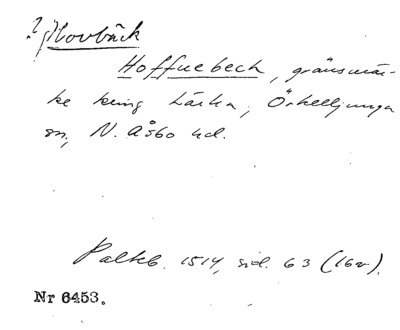 ? Hovbäck
Hoffuebech, gränsmär-
ke kring Lärka, Örkelljunga
sn, N. Åsbo hd.
Palteb. 1514, sid. 63 (16v).
Nr 6453.